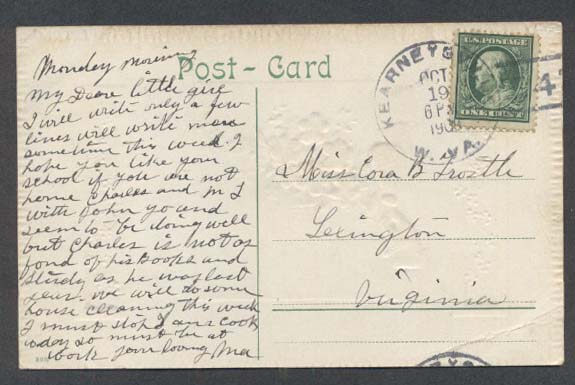 Monday Morning
Post-Card
My Dear little girl
I will write only a few
lines will write more
sometime this week. I
hope you like your
school if you are not
home Charles and
with John
seem to be doing well
but Charles is not as
fond of his books and
study as he was last
year. we will do some
house cleaning this week
I must stop I am cook
today so must be at
work your loving Ma
KEARNEYS
OCT
19
6 P
190
W. VA.
4
U.S. POSTAGE
ONE CENT
Miss Cora B Trostle
Lexington
Virginia